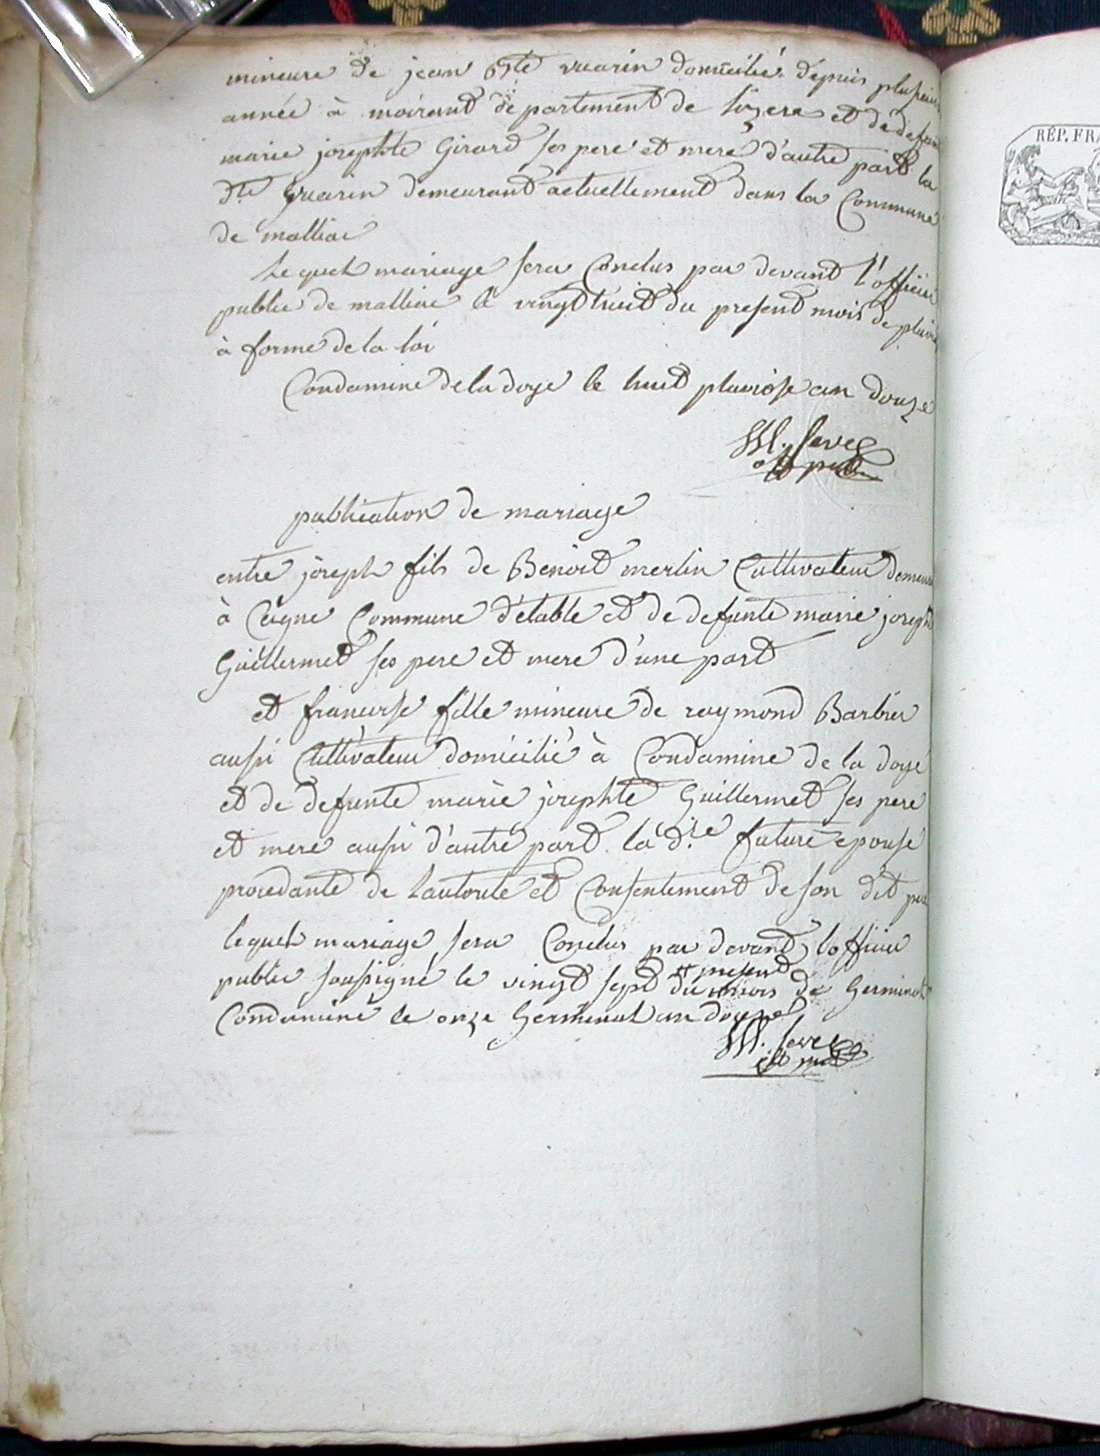 mineure de jean Bte vuarin domicilié depuis plusieurs
année à moirant département de lizere et de defunte
marie josephte Girard ses pere et mere d'autre part la
dte vuarin demeurant actuellement dans la Commune
de malliac
lequel mariage sera Conclus par devant l'officier
public de malliac le vingt huit du present mois de pluviose
à forme de la loi
Condamine de la doye le huit pluviose an douze
off pub
publication de mariage
entre joseph fils de Benoit merlin Cultivateur demeurant
à Ceigne Commune d'étable et de defunte marie josephte
Guillermet ses pere et mere d'une part
et francoise fille mineure de raymond Barbier
aussi Cultivateur domicilié à Condamine de la doye
et de defunte marie josephte Guillermet ses pere
et mere aussi d'autre part la d.te future epouse
procedante de l'autorité et Consentement de son dit pere
lequel mariage sera Conclus par devant l'officier
public soussigné le vingt sept du present mois de Germinal
Condamine le onze Germinal an douze
off pub
RÉP. FRA